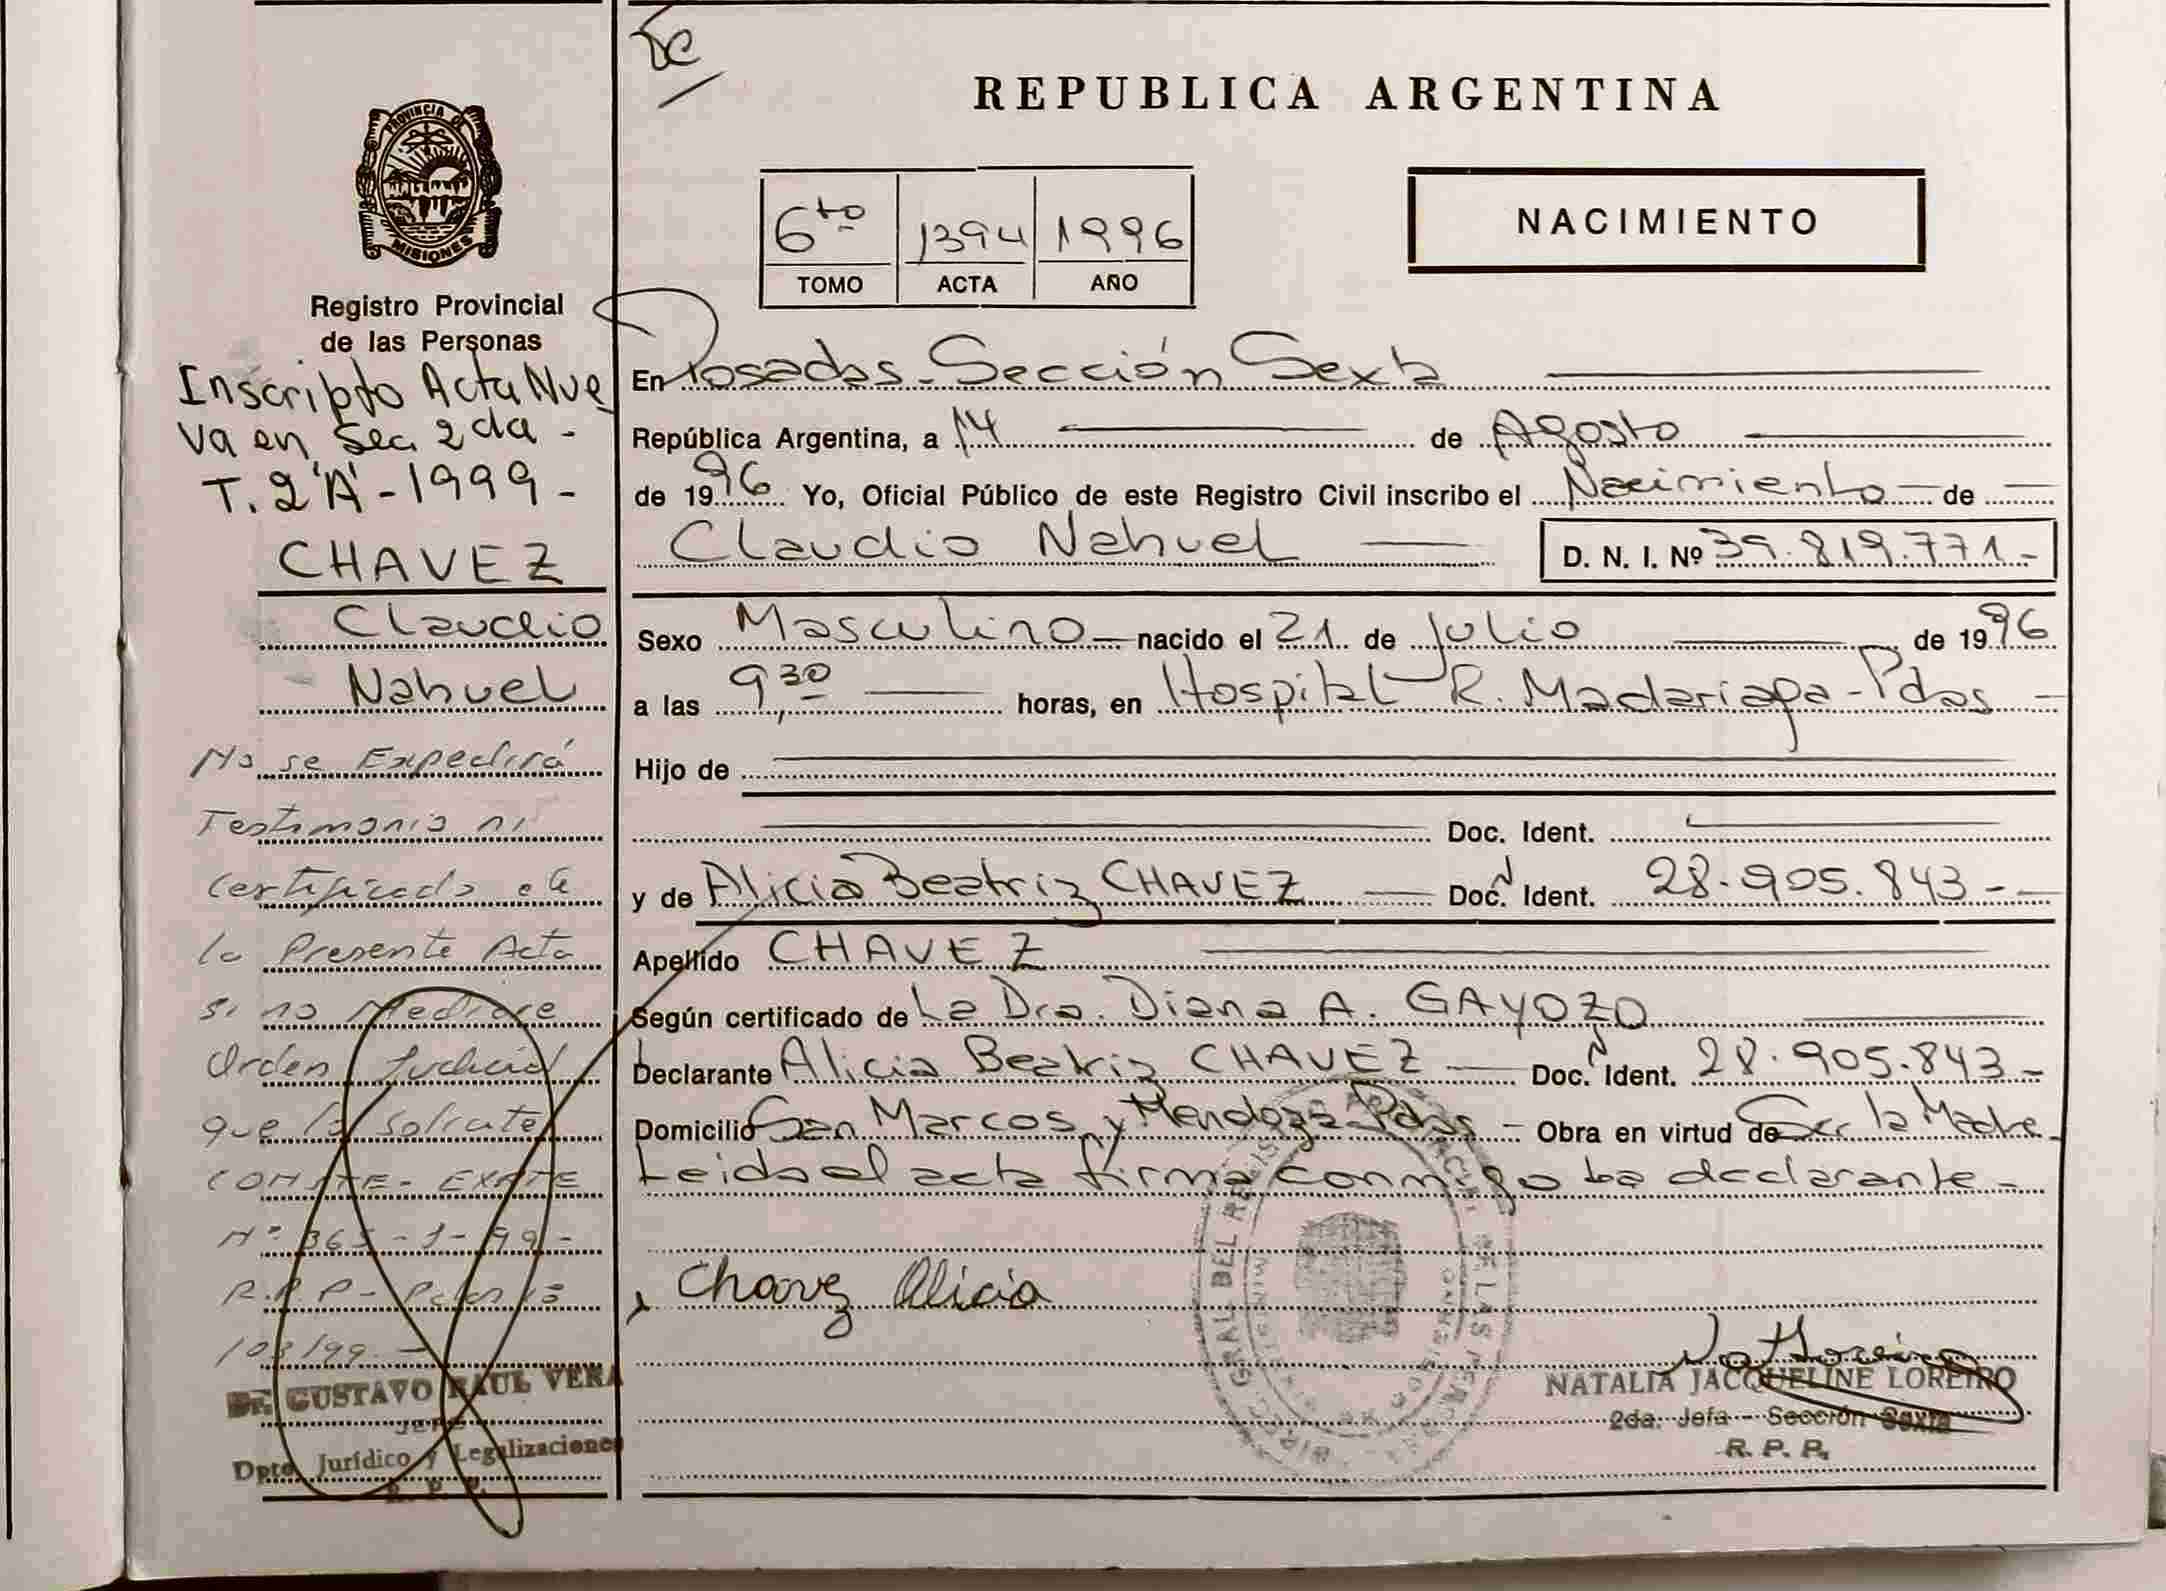 Sc
REPUBLICA ARGENTINA
PROVINCIA DE
MISIONES
Registro Provincial
de las Personas
6to 1394 1996
TOMO ACTA AÑO
NACIMIENTO
Inscripto Acta Nue
va en Sec 2da -
T. 2 "A" - 1999 -
CHAVEZ
Claudio
Nahuel
No se Expedirá
Testimonio ni
Certificado de
la Presente Acta
si no Mediare
Orden Judicial
que lo solicite
CONSTE - EXPTE
Nº 365 - J - 99 -
R.P.P - Pdas 13
/03/99. -
Dr. GUSTAVO RAUL VERA
JEFE
Dpto. Jurídico y Legalizaciones
R. P. P.
En Posadas - Sección Sexta
República Argentina, a 14 de Agosto
de 1996 Yo, Oficial Público de este Registro Civil inscribo el Nacimiento de
Claudio Nahuel D. N. I. Nº 39.819.771.-
Sexo Masculino nacido el 21 de Julio de 1996
a las 9,30 horas, en Hospital R. Madariaga - Pdas -
Hijo de
Doc. Ident.
y de Alicia Beatriz CHAVEZ Doc. Ident. 28.905.843 -
Apellido CHAVEZ
Según certificado de La Dra. Diana A. GAYOZO
Declarante Alicia Beatriz CHAVEZ Doc. Ident. 28.905.843 -
Domicilio San Marcos y Mendoza Pdas - Obra en virtud de Ser la Madre
Leida el acta firma conmigo la declarante -
Chavez Alicia
NATALIA JACQUELINE LOREIRO
2da. Jefa - Sección Sexta
R. P. P.